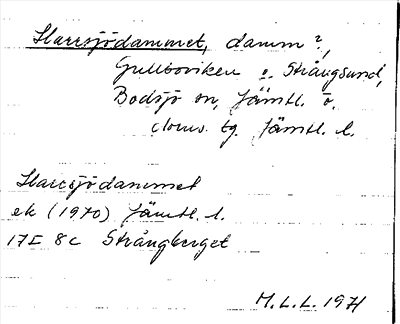 Harrsjödammet, damm?,
Gulltoviken o. Strångsund,
Bodsjö sn, Jämtl. ö.
doms. tg. Jämtl. l.
Harrsjödammet
ek (1970) Jämtl. l.
17E 8c Strångberget
M.L.L. 1971